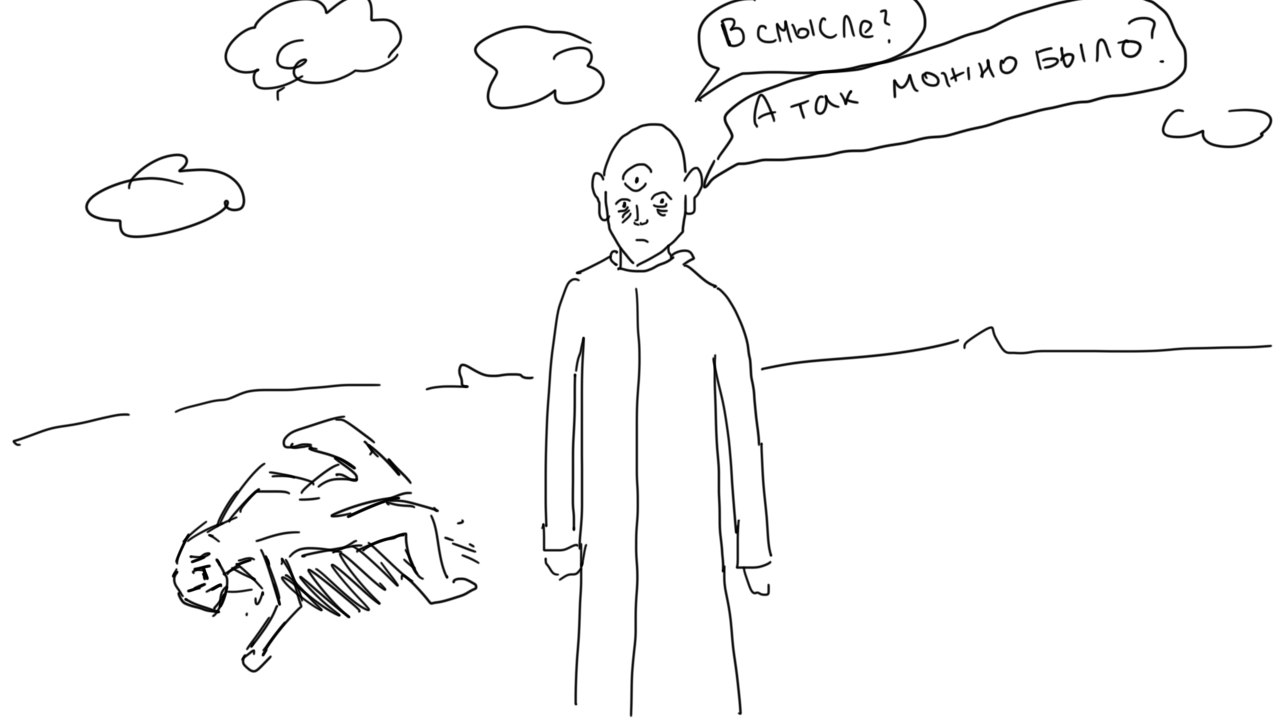 В смысле?
А так можно было?